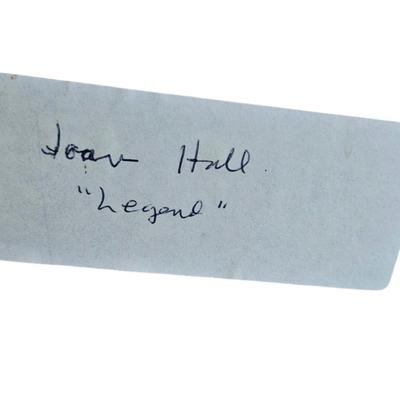 Joan Hall.
"Legend"